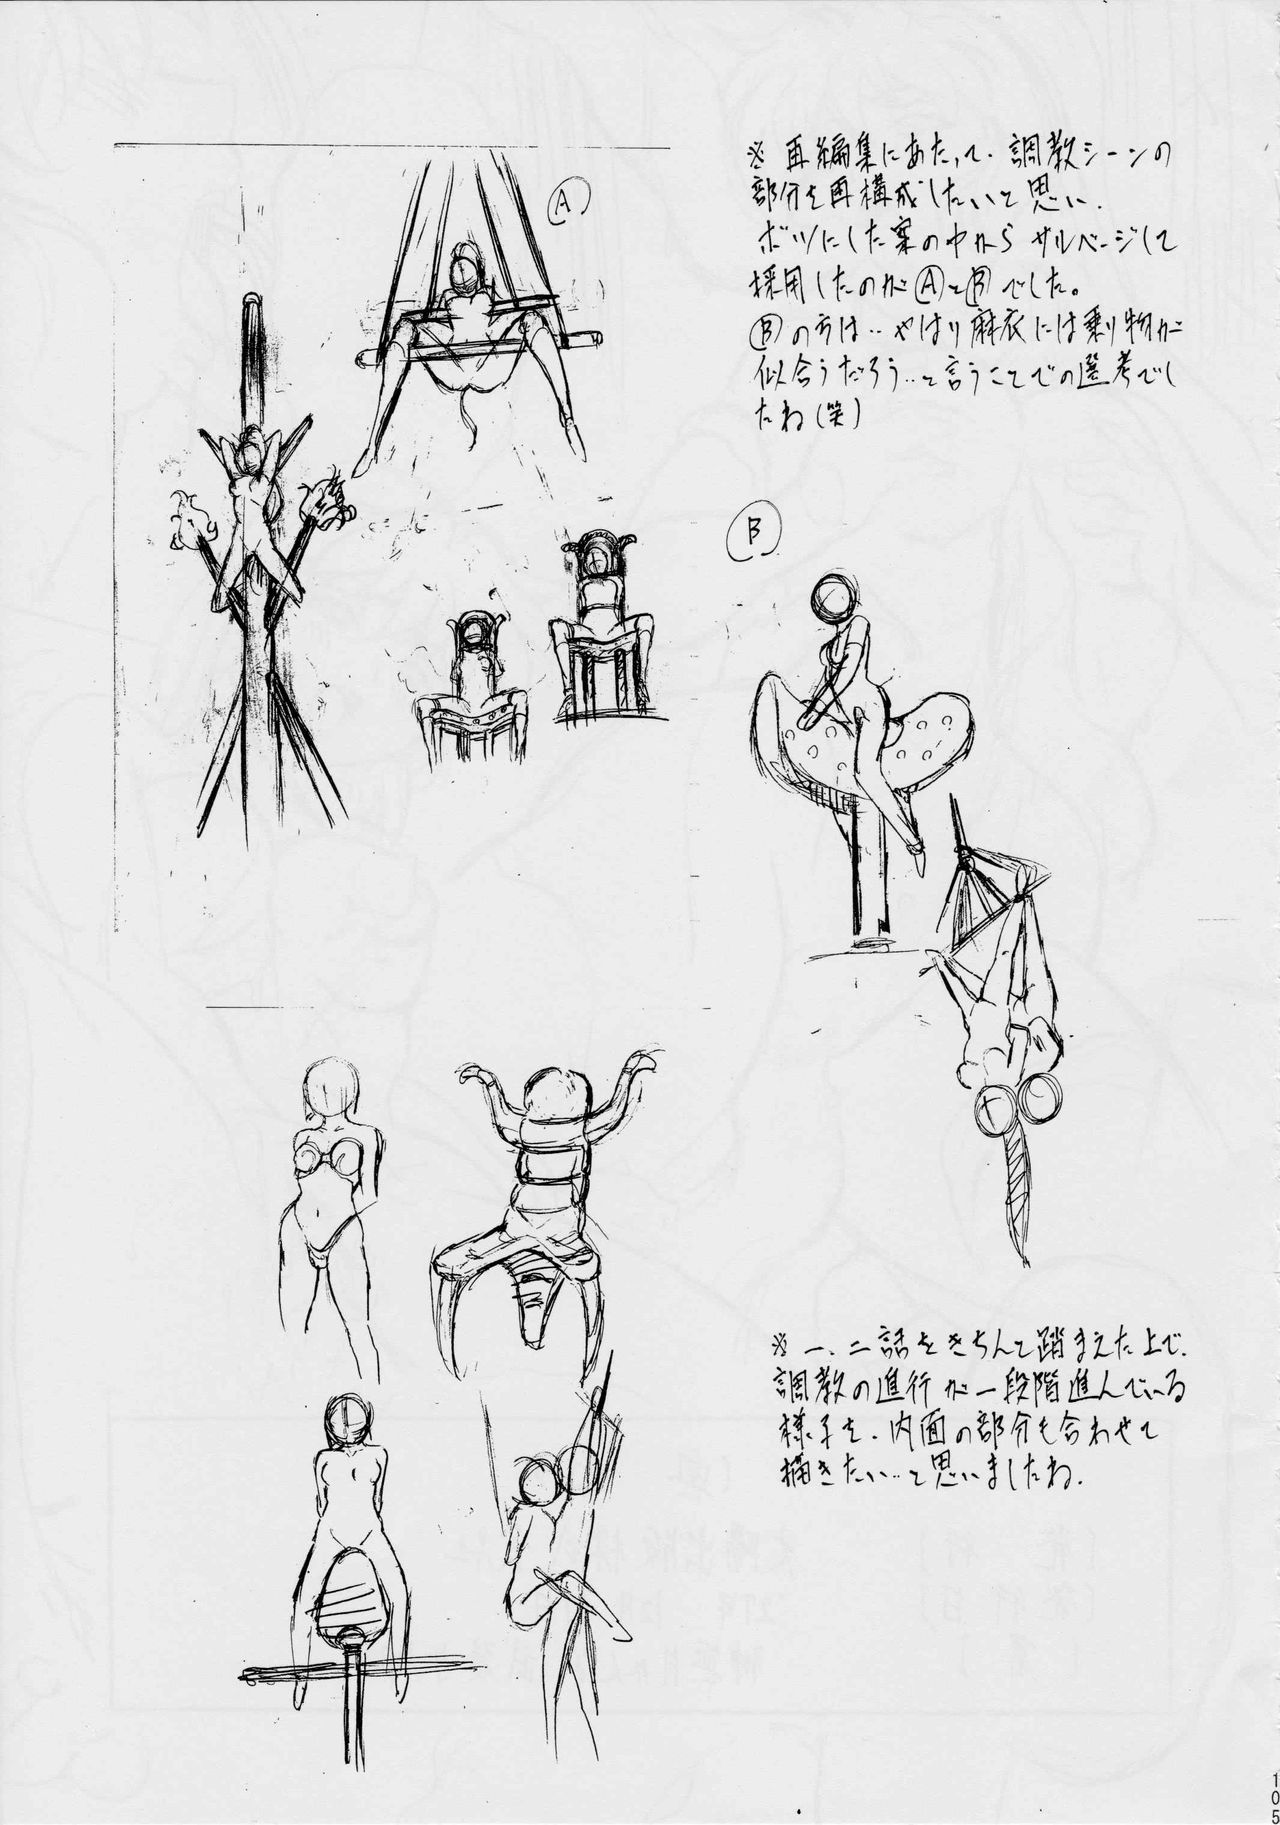 ※ 再編集にあたって、調教シーンの
部分を再構成したいと思い、
ボツにした案の中から サルベージして
採用したのがⒶとⒷでした。
Ⓑの方は‥やはり麻衣には乗り物が
似合うだろう‥と言うことでの選考でし
たね(笑)
Ⓐ
Ⓑ
※ 一、二話をきちんと踏まえた上で、
調教の進行が一段階進んでいる
様子を、内面の部分も合わせて
描きたい‥と思いましたね.
105